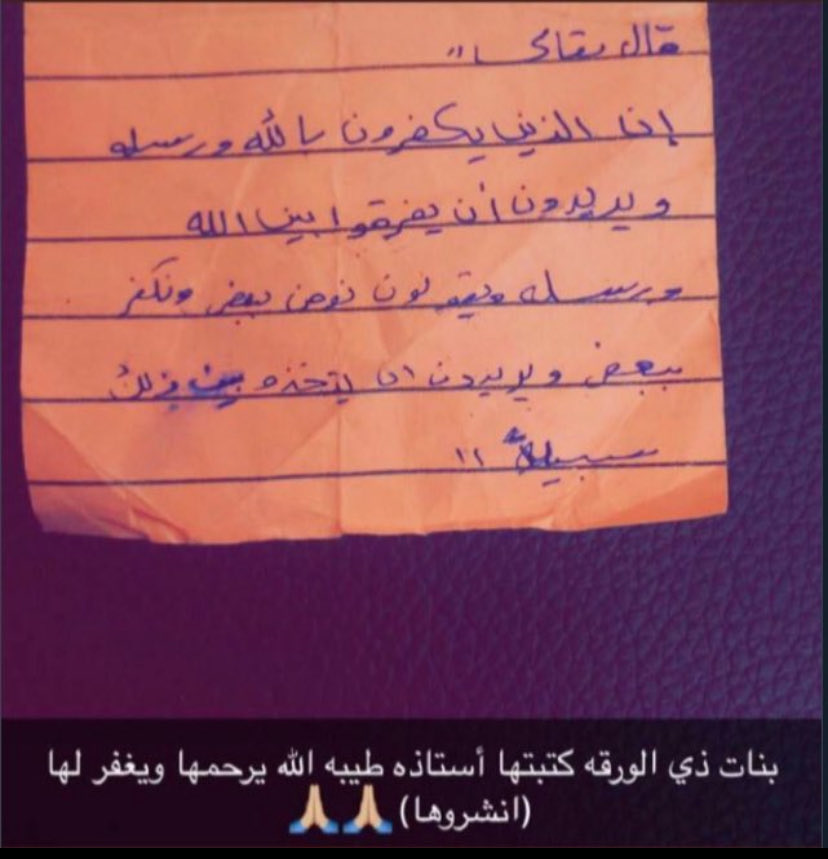 قال تعالى "
إن الذين يكفرون بالله ورسله
ويريدون أن يفرقوا بين الله
ورسله ويقولون نؤمن ببعض ونكفر
ببعض ويريدون ان يتخذه بين ذلك
سبيلاً "
بنات ذي الورقه كتبتها أستاذه طيبه الله يرحمها ويغفر لها
(انشروها) 🙏🏼🙏🏼